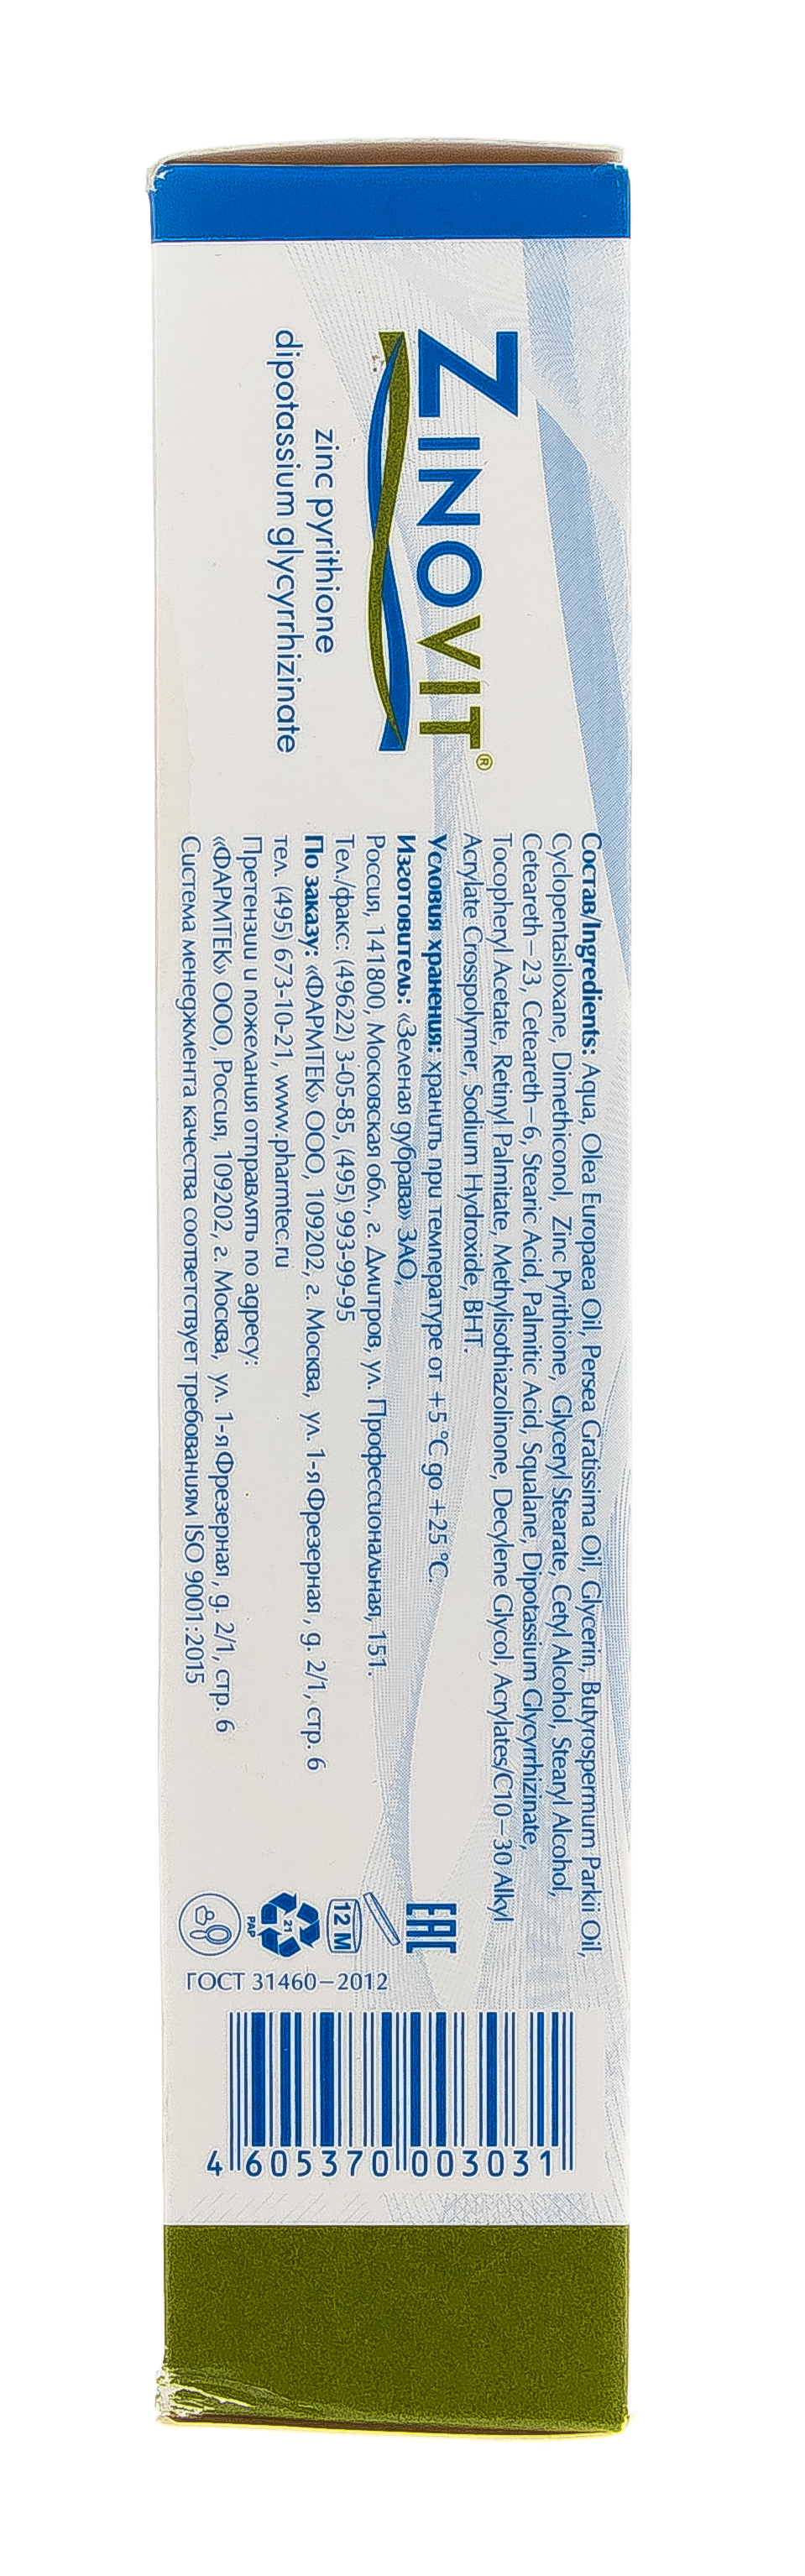 ZINOVIT®
zinc pyrithione
dipotassium glycyrrhizinate
Состав/Ingredients: Aqua, Olea Europaea Oil, Persea Gratissima Oil, Glycerin, Butyrospermum Parkii Oil,
Cyclopentasiloxane, Dimethiconol, Zinc Pyrithione, Glyceryl Stearate, Cetyl Alcohol, Stearyl Alcohol,
Ceteareth–23, Ceteareth–6, Stearic Acid, Palmitic Acid, Squalane, Dipotassium Glycyrrhizinate,
Tocopheryl Acetate, Retinyl Palmitate, Methylisothiazolinone, Decylene Glycol, Acrylates/C10–30 Alkyl
Acrylate Crosspolymer, Sodium Hydroxide, BHT.
Условия хранения: хранить при температуре от +5 °С до +25 °С.
Изготовитель: «Зеленая дубрава» ЗАО,
Россия, 141800, Московская обл., г. Дмитров, ул. Профессиональная, 151.
Тел./факс: (49622) 3-05-85, (495) 993-99-95
По заказу: «ФАРМТЕК» ООО, 109202, г. Москва, ул. 1-я Фрезерная, д. 2/1, стр. 6
тел. (495) 673-10-21, www.pharmtec.ru
Претензии и пожелания отправлять по адресу:
«ФАРМТЕК» ООО, Россия, 109202, г. Москва, ул. 1-я Фрезерная, д. 2/1, стр. 6
Система менеджмента качества соответствует требованиям ISO 9001:2015
EAC
12 M
21
PAP
ГОСТ 31460–2012
4 605370 003031